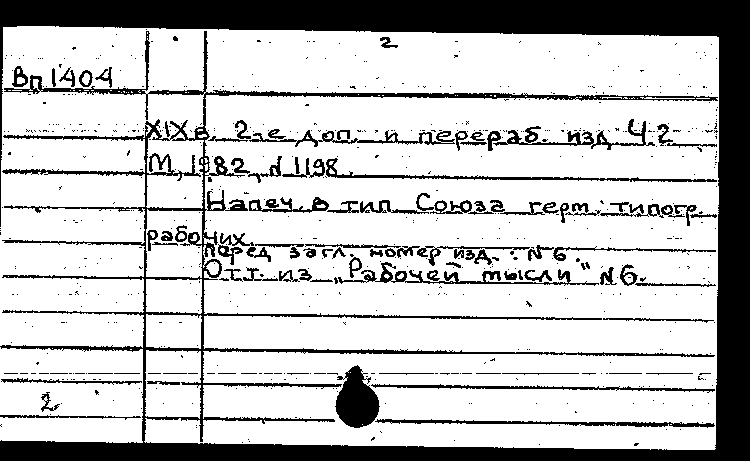 2
Вп 1404
XIX в. 2-е доп. и перераб. изд Ч.2
М, 1982, N 1198.
Напеч. в тип Союза герм. типогр.
рабочих.
перед загл. номер изд.: N 6.
Отт. из „Рабочей мысли" N 6.
2